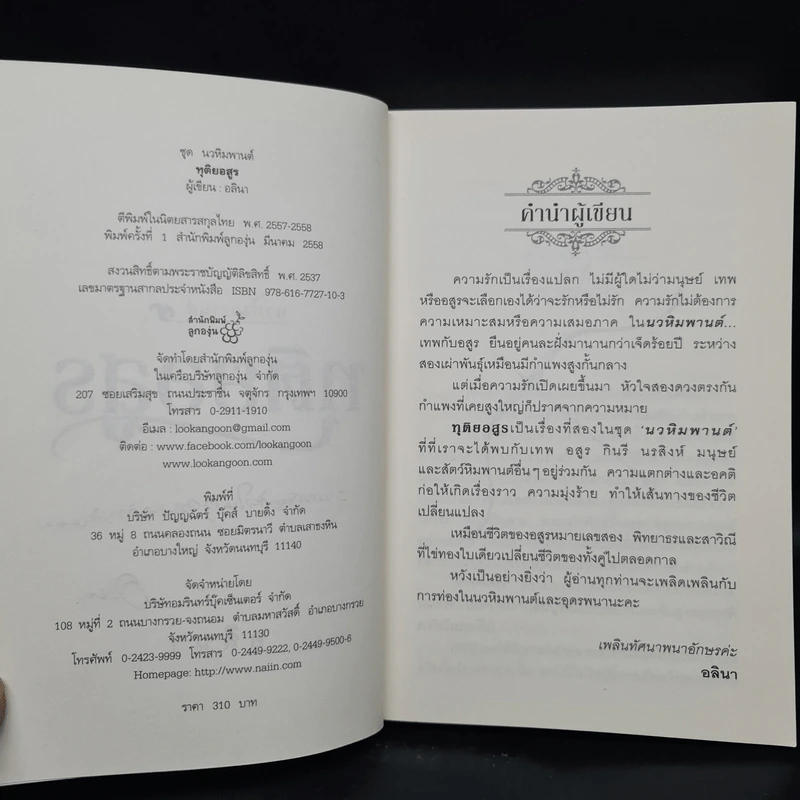 ชุด นวหิมพานต์
ทุติยอสูร
ผู้เขียน : อลินา
ตีพิมพ์ในนิตยสารสกุลไทย พ.ศ. 2557-2558
พิมพ์ครั้งที่ 1 สำนักพิมพ์ลูกองุ่น มีนาคม 2558
สงวนสิทธิ์ตามพระราชบัญญัติลิขสิทธิ์ พ.ศ. 2537
เลขมาตรฐานสากลประจำหนังสือ ISBN 978-616-7727-10-3
สำนักพิมพ์
ลูกองุ่น
จัดทำโดยสำนักพิมพ์ลูกองุ่น
ในเครือบริษัทลูกองุ่น จำกัด
207 ซอยเสริมสุข ถนนประชาชื่น จตุจักร กรุงเทพฯ 10900
โทรสาร 0-2911-1910
อีเมล : lookangoon@gmail.com
ติดต่อ : www.facebook.com/lookangoon
www.lookangoon.com
พิมพ์ที่
บริษัท ปัญญฉัตร์ บุ๊คส์ บายดิ้ง จำกัด
36 หมู่ 8 ถนนคลองถนน ซอยมิตรนาวี ตำบลเสาธงหิน
อำเภอบางใหญ่ จังหวัดนนทบุรี 11140
จัดจำหน่ายโดย
บริษัทอมรินทร์บุ๊คเซ็นเตอร์ จำกัด
108 หมู่ที่ 2 ถนนบางกรวย-จงถนอม ตำบลมหาสวัสดิ์ อำเภอบางกรวย
จังหวัดนนทบุรี 11130
โทรศัพท์ 0-2423-9999 โทรสาร 0-2449-9222, 0-2449-9500-6
Homepage: http://www.naiin.com
ราคา 310 บาท
คำนำผู้เขียน
ความรักเป็นเรื่องแปลก ไม่มีผู้ใดไม่ว่ามนุษย์ เทพ
หรืออสูรจะเลือกเองได้ว่าจะรักหรือไม่รัก ความรักไม่ต้องการ
ความเหมาะสมหรือความเสมอภาค ในนวหิมพานต์...
เทพกับอสูร ยืนอยู่คนละฝั่งมานานกว่าเจ็ดร้อยปี ระหว่าง
สองเผ่าพันธุ์เหมือนมีกำแพงสูงกั้นกลาง
แต่เมื่อความรักเปิดเผยขึ้นมา หัวใจสองดวงตรงกัน
กำแพงที่เคยสูงใหญ่ก็ปราศจากความหมาย
ทุติยอสูรเป็นเรื่องที่สองในชุด 'นวหิมพานต์'
ที่ที่เราจะได้พบกับเทพ อสูร กินรี นรสิงห์ มนุษย์
และสัตว์หิมพานต์อื่นๆอยู่ร่วมกัน ความแตกต่างและอคติ
ก่อให้เกิดเรื่องราว ความมุ่งร้าย ทำให้เส้นทางของชีวิต
เปลี่ยนแปลง
เหมือนชีวิตของอสูรหมายเลขสอง พิทยาธรและสาวิณี
ที่ไข่ทองใบเดียวเปลี่ยนชีวิตของทั้งคู่ไปตลอดกาล
หวังเป็นอย่างยิ่งว่า ผู้อ่านทุกท่านจะเพลิดเพลินกับ
การท่องในนวหิมพานต์และอุดรพนานะคะ
เพลินทัศนาพนาอักษรค่ะ
อลินา